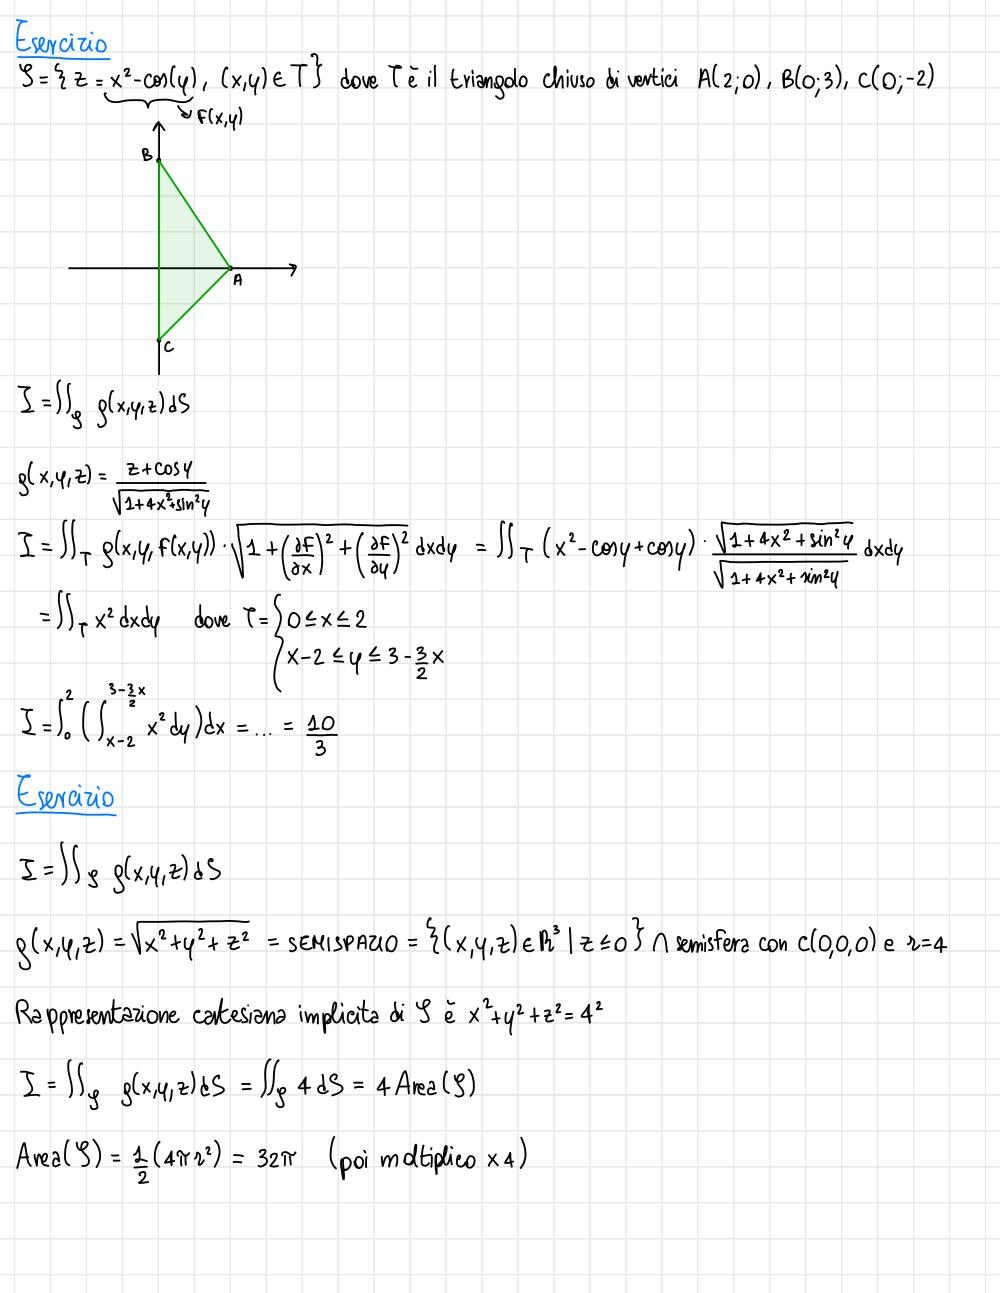 Esercizio
S = { z = x² - cos(y), (x,y) ∈ T } dove T è il triangolo chiuso di vertici A(2;0), B(0;3), C(0;-2)
F(x,y)
B
A
C
I = ∬_S g(x,y,z) dS
g(x,y,z) = (z + cos y) / √(1+4x²+sin²y)
I = ∬_T g(x,y,f(x,y)) · √(1 + (∂F/∂x)² + (∂F/∂y)²) dxdy = ∬_T (x² - cosy + cosy) · √(1+4x²+sin²y) / √(1+4x²+sin²y) dxdy
= ∬_T x² dxdy dove T = { 0 ≤ x ≤ 2
x-2 ≤ y ≤ 3 - 3/2 x
I = ∫₀² ( ∫_{x-2}^{3-3/2x} x² dy ) dx = ... = 10/3
Esercizio
I = ∬_S g(x,y,z) dS
g(x,y,z) = √(x²+y²+z²) = SEMISPAZIO = {(x,y,z) ∈ ℝ³ | z ≤ 0} ∩ semisfera con C(0,0,0) e r=4
Rappresentazione cartesiana implicita di S è x²+y²+z² = 4²
I = ∬_S g(x,y,z) dS = ∬_S 4 dS = 4 Area(S)
Area(S) = 1/2 (4πr²) = 32π (poi moltiplico x4)